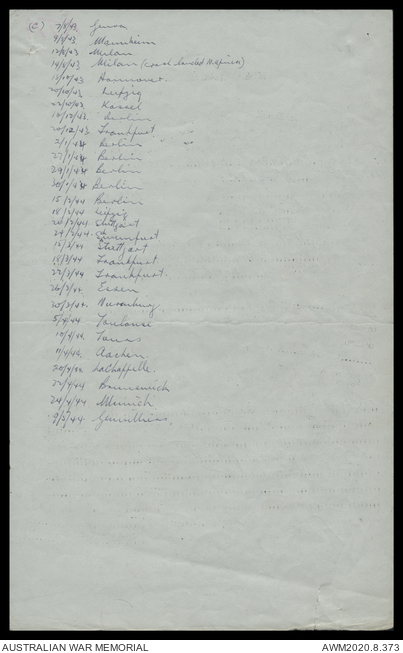 (C) 7/8/43 Genoa
9/8/43 Mannheim
12/8/43 Milan
14/8/43 Milan (crash landed N. Africa)
18/10/43 Hannover.
20/10/43 Leipzig
22/10/43 Kassel
16/12/43 Berlin
20/12/43 Frankfurt
2/1/44 Berlin
27/1/44 Berlin
29/1/44 Berlin
30/1/44 Berlin
15/2/44 Berlin
19/2/44 Leipzig
20/2/44 Stuttgart
24/2/44 Schweinfurt
15/3/44 Stuttgart
18/3/44 Frankfurt
22/3/44 Frankfurt.
26/3/44 Essen
30/3/44. Nuremburg
5/4/44 Toulouse
10/4/44 Tours
11/4/44. Aachen
20/4/44 La Chappelle.
22/4/44 Brunswick
24/4/44 Munich
9/5/44
AUSTRALIAN WAR MEMORIAL
AWM2020.8.373